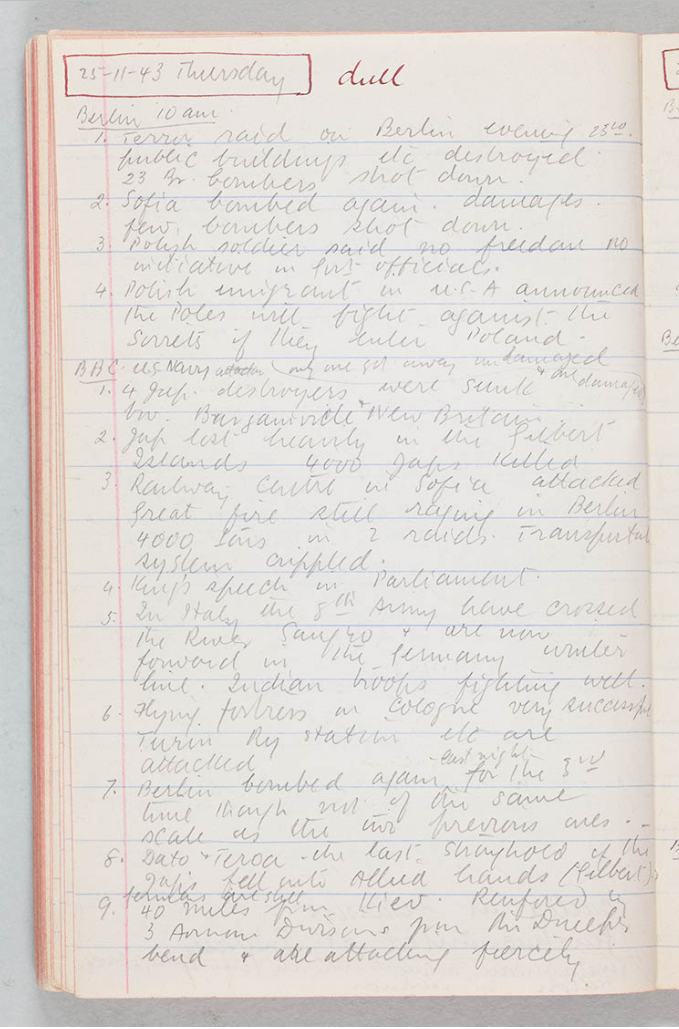 25-11-43 Thursday dull
Berlin 10 am.
1. Terror raid on Berlin evening 23rd.
public buildings etc destroyed.
23 Br. bombers shot down.
2. Sofia bombed again. damages.
few bombers shot down.
3. Polish soldier said no freedom no
initiative in officials.
4. Polish emigrant in U.S.A announced
the Poles will fight against the
Soviets if they enter Poland.
BBC. U.S. Navy only one got away undamaged
1. 4 Jap. destroyers were sunk & one damaged
bw. & New Britain.
2. Jap lost heavily in the Gilbert
Islands 4000 Japs killed
3. Railway Centre in Sofia attacked
Great fire still raging in Berlin
4000 tons in 2 raids. Transportat
system crippled.
4. King's speech in Parliament.
5. In Italy the 8th Army have crossed
the River Sangro & are now
forward in the Germany winter
line. Indian troops fighting well.
6. Flying fortress on Cologne very successful
Turin Rly station etc are
attacked
7. Berlin bombed again last night for the 3rd
time though not of the same
scale as the two previous ones.
8. the last stronghold of the
Japs fell into Allied hands (Gilbert)
9. Germans are still
40 miles from Kiev.
3 Divisions from the Dnieper
bend & are attacking fiercely